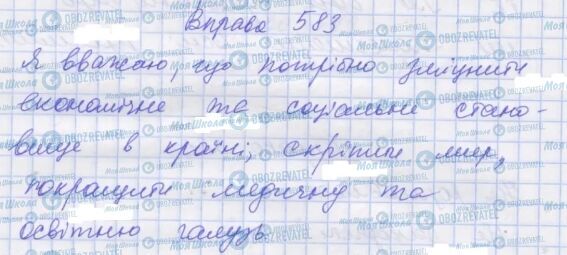 Вправа 583
Я вважаю, що потрібно зміцнити
економічне та соціальне стано-
вище в країні, скріпити мир,
покращити медичну та
освітню галузь.